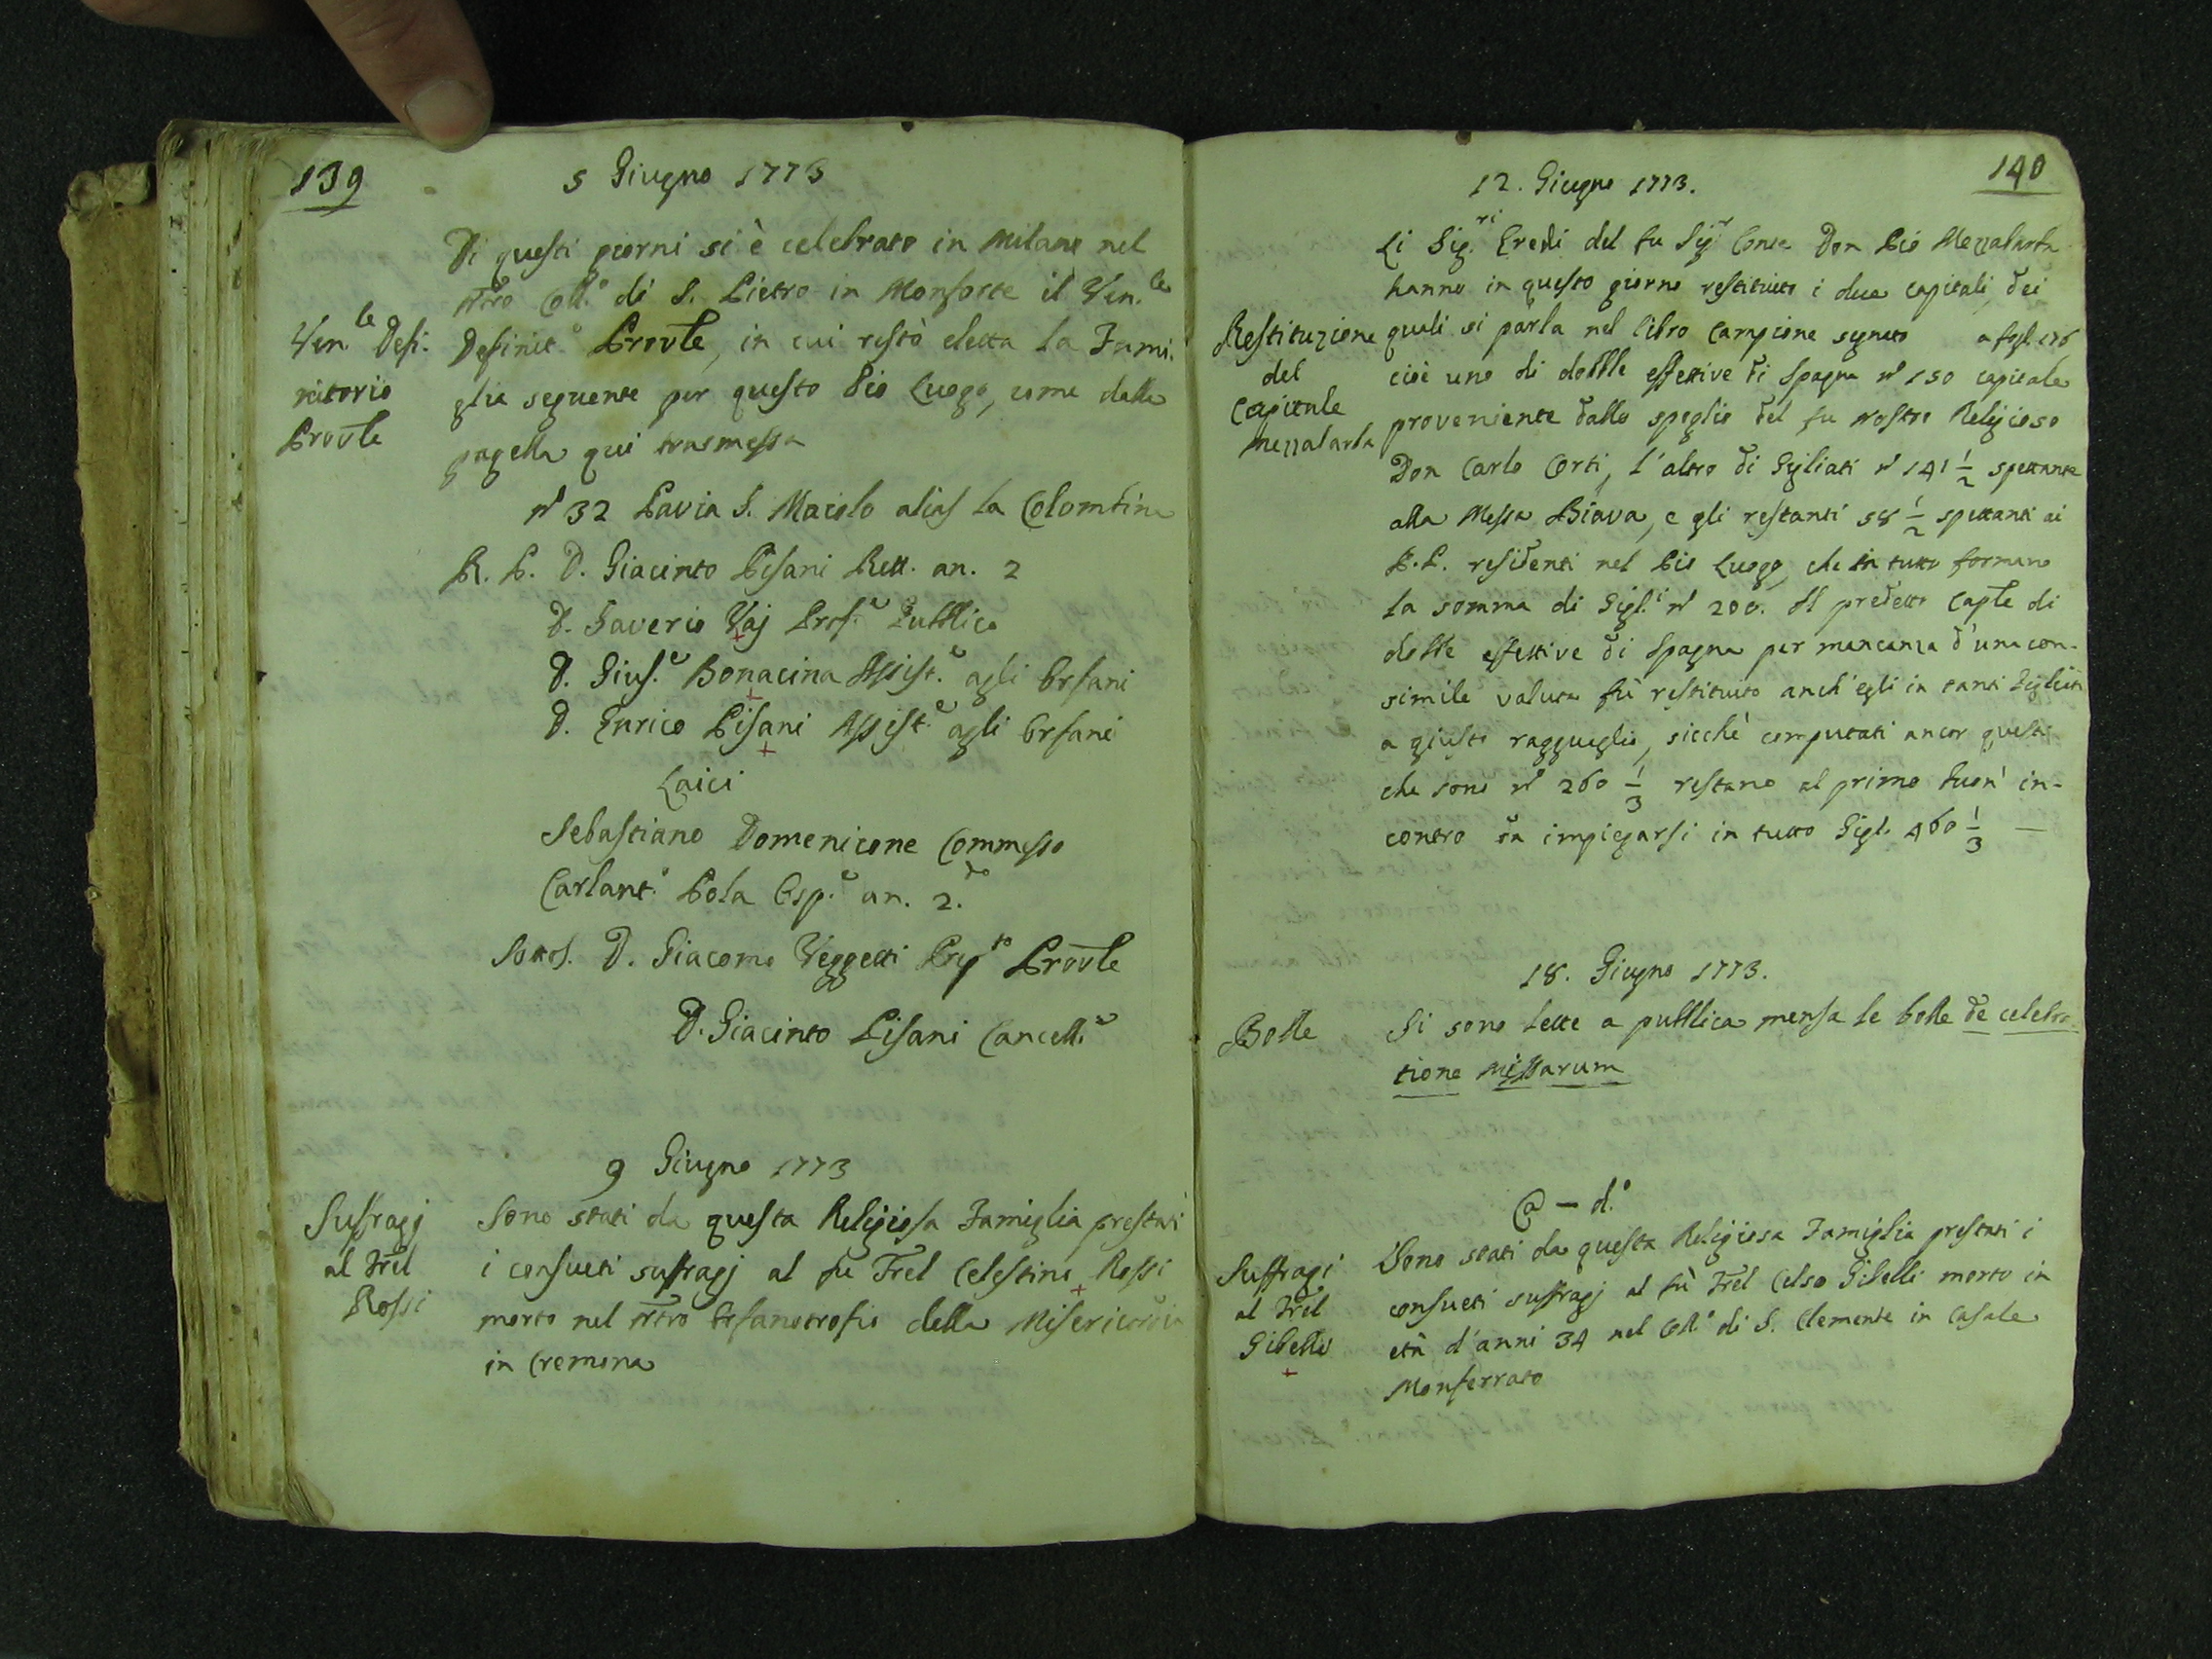 139
5 Giugno 1773
Di questi giorni si è celebrato in Milano nel
nro Coll.o di S. Pietro in Monforte il Ven.le
Ven.le Defi-
nitorio
Provle
Definit.o Provle, in cui restò eletta la Fami-
glia seguente per questo Pio Luogo, come dalla
pagella qui trasmessa
n.o 32 Pavia S. Maiolo alias la Colombina
R. P. D. Giacinto Pisani Rett. an. 2
D. Saverio Vaj Prof.e Pubblico
D. Gius.e Bonacina Assist.e agli Orfani
D. Enrico Pisani Assist.e agli Orfani
Laici
Sebastiano Domenicone Commesso
Carlant.o Pola Osp.e an. 2.do
Sottos. D. Giacomo Veggetti Prep.to Provle
D. Giacinto Pisani Cancell.e
9 Giugno 1773
Suffragj
al Frel
Rossi
Sono stati da questa Religiosa Famiglia prestati
i consueti suffragj al fu Frel Celestino Rossi
morto nel nrro Orfanotrofio della Misericordia
in Cremona
140
12. Giugno 1773.
Li Sig.ri Eredi del fu Sig.r Conte Don Pio Mezzabarba
hanno in questo giorno restituito i due capitali, dei
Restituzione
del
Capitale
Mezzabarba
quali si parla nel libro Campione segnato a fogl. 176
cioè uno di dobble effettive di Spagna n.o 150 capitale
proveniente dallo spoglio del fu nostro Religioso
Don Carlo Corti, l'altro di Gigliati n.o 141 1/2 spettante
alla Messa Biava, e gli restanti 58 1/2 spettanti ai
P.P. residenti nel Pio Luogo, che in tutto formano
la somma di Gigl.i n.o 200. Il predetto Caple di
dobble effettive di Spagna per mancanza d'una con-
simile valuta fù restituito anch'egli in tanti Gigliati
a giusto ragguaglio, sicchè computati ancor questi
che sono n.o 260 1/3 restano al primo buon' in-
contro da impiegarsi in tutto Gigl. 460 1/3 —
18. Giugno 1773.
Bolle
Si sono lette a pubblica mensa le bolle de celebra-
tione Missarum
@ — d.o
Suffragi
al Frel
Gibelli
Sono stati da questa Religiosa Famiglia prestati i
consueti suffragj al fù Frel Celso Gibelli morto in
età d'anni 34 nel Coll.o di S. Clemente in Casale
Monferrato